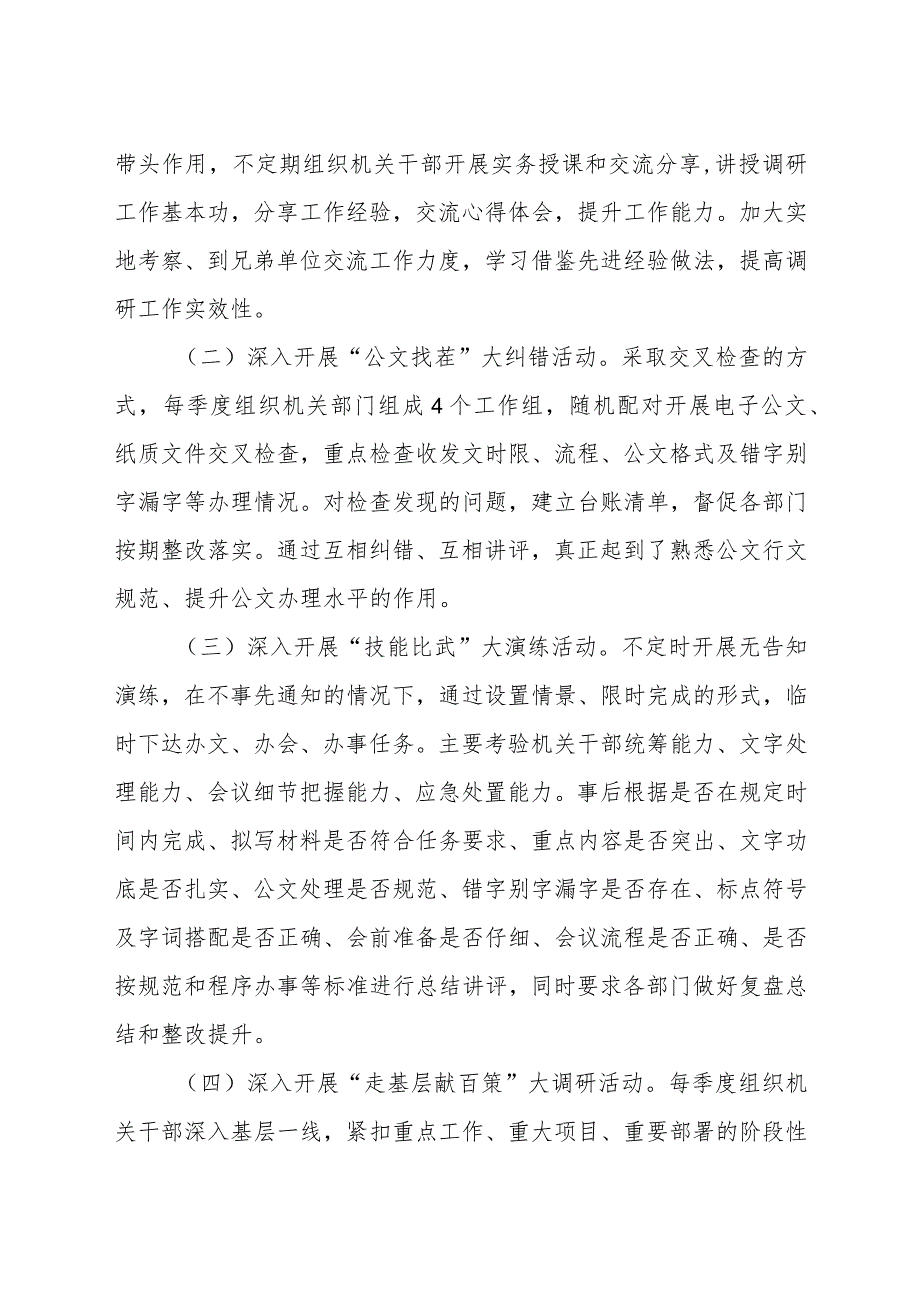 带头作用，不定期组织机关干部开展实务授课和交流分享,讲授调研
工作基本功，分享工作经验，交流心得体会，提升工作能力。加大实
地考察、到兄弟单位交流工作力度，学习借鉴先进经验做法，提高调
研工作实效性。
（二）深入开展“公文找茬”大纠错活动。采取交叉检查的方
式，每季度组织机关部门组成4个工作组，随机配对开展电子公文、
纸质文件交叉检查，重点检查收发文时限、流程、公文格式及错字别
字漏字等办理情况。对检查发现的问题，建立台账清单，督促各部门
按期整改落实。通过互相纠错、互相讲评，真正起到了熟悉公文行文
规范、提升公文办理水平的作用。
（三）深入开展“技能比武”大演练活动。不定时开展无告知
演练，在不事先通知的情况下，通过设置情景、限时完成的形式，临
时下达办文、办会、办事任务。主要考验机关干部统筹能力、文字处
理能力、会议细节把握能力、应急处置能力。事后根据是否在规定时
间内完成、拟写材料是否符合任务要求、重点内容是否突出、文字功
底是否扎实、公文处理是否规范、错字别字漏字是否存在、标点符号
及字词搭配是否正确、会前准备是否仔细、会议流程是否正确、是否
按规范和程序办事等标准进行总结讲评，同时要求各部门做好复盘总
结和整改提升。
（四）深入开展“走基层献百策”大调研活动。每季度组织机
关干部深入基层一线，紧扣重点工作、重大项目、重要部署的阶段性